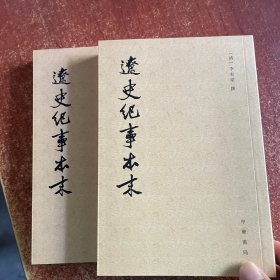 遼史紀事本末
遼史紀事本末
〔清〕李有棠 撰
中華書局